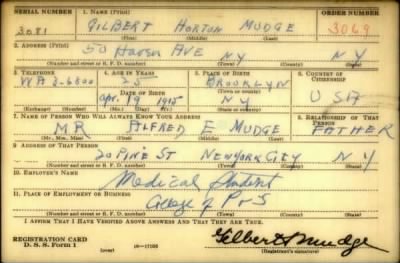 SERIAL NUMBER 1. NAME (Print) ORDER NUMBER
3081 GILBERT HORTON MUDGE 3069
(First) (Middle) (Last)
2. ADDRESS (Print)
50 Haven AVE NY NY
(Number and street or R. F. D. number) (Town) (County) (State)
3. TELEPHONE 4. AGE IN YEARS 5. PLACE OF BIRTH 6. COUNTRY OF CITIZENSHIP
WA 3-6800 25 BROOKLYN
DATE OF BIRTH (Town or county)
Apr. 19 1915 NY USA
(Exchange) (Number) (Mo.) (Day) (Yr.) (State or country)
7. NAME OF PERSON WHO WILL ALWAYS KNOW YOUR ADDRESS 8. RELATIONSHIP OF THAT PERSON
MR ALFRED E MUDGE FATHER
(Mr., Mrs., Miss) (First) (Middle) (Last)
9. ADDRESS OF THAT PERSON
20 PINE ST NEW YORK CITY NY
(Number and street or R. F. D. number) (Town) (County) (State)
10. EMPLOYER'S NAME
Medical Student
11. PLACE OF EMPLOYMENT OR BUSINESS
College of P & S
(Number and street or R. F. D. number) (Town) (County) (State)
I AFFIRM THAT I HAVE VERIFIED ABOVE ANSWERS AND THAT THEY ARE TRUE.
REGISTRATION CARD
D. S. S. Form 1 (over) Gilbert H Mudge
(Registrant's signature)